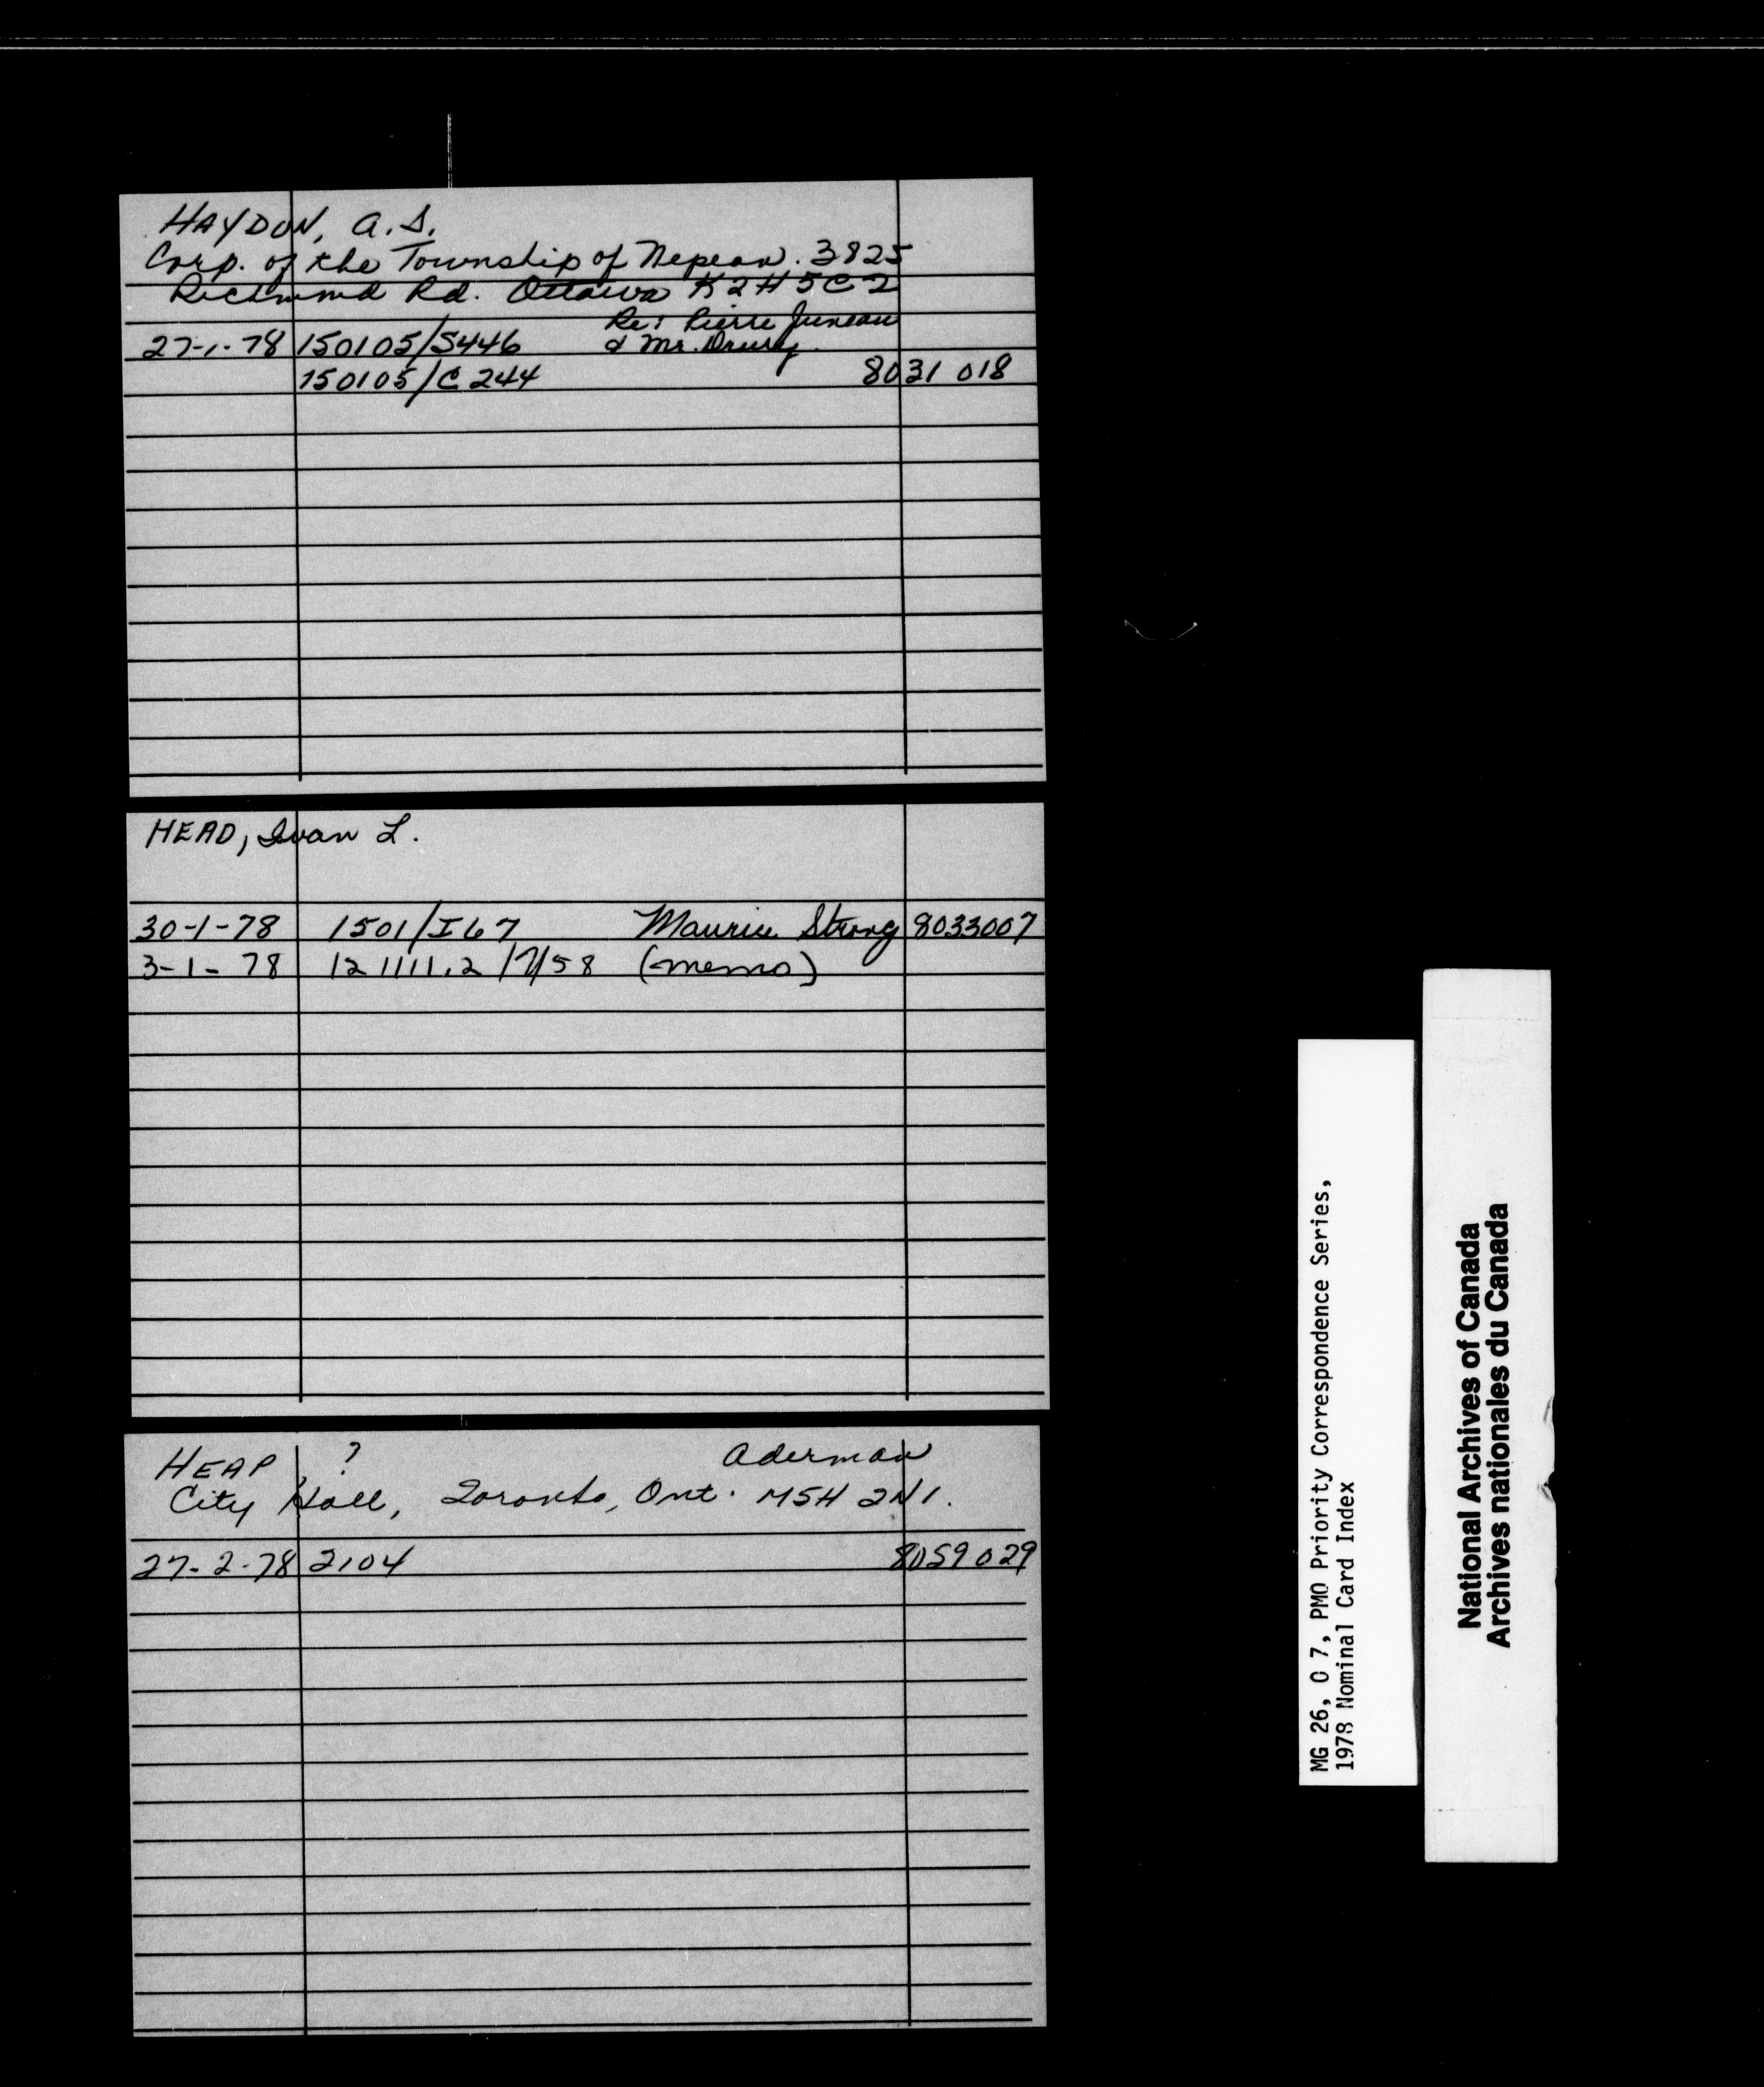 HAYDON, A.S.
Corp. of the Township of Nepean. 3825
Richmond Rd. Ottawa K2H 5C2
Re: Pierre Juneau
27-1-78 150105/S446 & Mr. Drury.
150105/C244 8031 018
HEAD, Ivan L.
30-1-78 1501/I67 Maurice Strong 8033007
3-1-78 121111.2 (memo)
HEAP ? Aderman
City Hall, Toronto, Ont. M5H 2N1.
27-2-78 2104 8059029
MG 26, O 7, PMO Priority Correspondence Series,
1978 Nominal Card Index
National Archives of Canada
Archives nationales du Canada